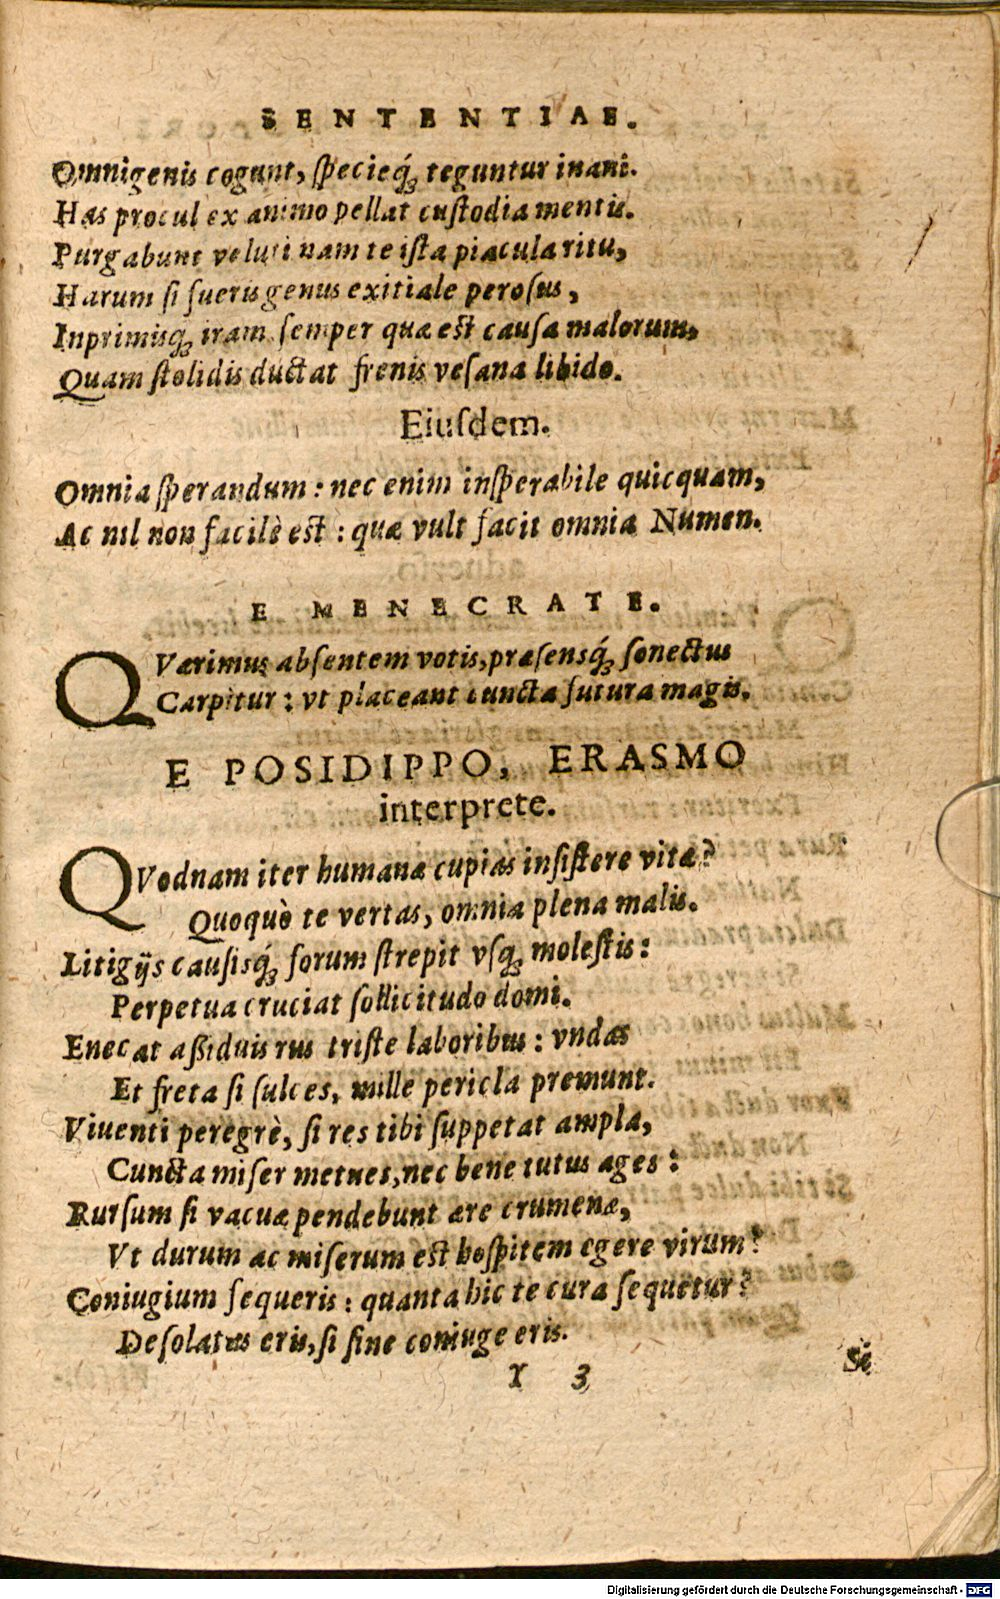 SENTENTIAE.
Omnigenis cogunt, ſpecieq́ʒ teguntur inani.
Has procul ex animo pellat cuſtodia mentis.
Purgabunt veluti nam te iſta piacula ritu,
Harum ſi fueris genus exitiale peroſus,
Inprimisq́ʒ iram ſemper quæ eſt cauſa malorum,
Quam ſtolidis ductat frenis veſana libido.
Eiuſdem.
Omnia ſperandum: nec enim inſperabile quicquam,
Ac nil non facilè eſt: quæ vult facit omnia Numen.
E MENECRATE.
QVærimus abſentem votis, præſensq́ʒ ſenectus
Carpitur: vt placeant cuncta futura magis.
E POSIDIPPO, ERASMO
interprete.
QVodnam iter humanæ cupias inſiſtere vitæ?
Quoquò te vertas, omnia plena malis.
Litigijs cauſisq́ʒ forum ſtrepit vſqʒ moleſtis:
Perpetua cruciat ſollicitudo domi.
Enecat aßiduis rus triſte laboribus: vndas
Et freta ſi ſulces, mille pericla premunt.
Viuenti peregrè, ſi res tibi ſuppetat ampla,
Cuncta miſer metues, nec bene tutus ages:
Rurſum ſi vacuæ pendebunt ære crumenæ,
Vt durum ac miſerum eſt hoſpitem egere virum?
Coniugium ſequeris: quanta hic te cura ſequetur?
Deſolatus eris, ſi ſine coniuge eris.
Y 3
Si
Digitalisierung gefördert durch die Deutsche Forschungsgemeinschaft - DFG